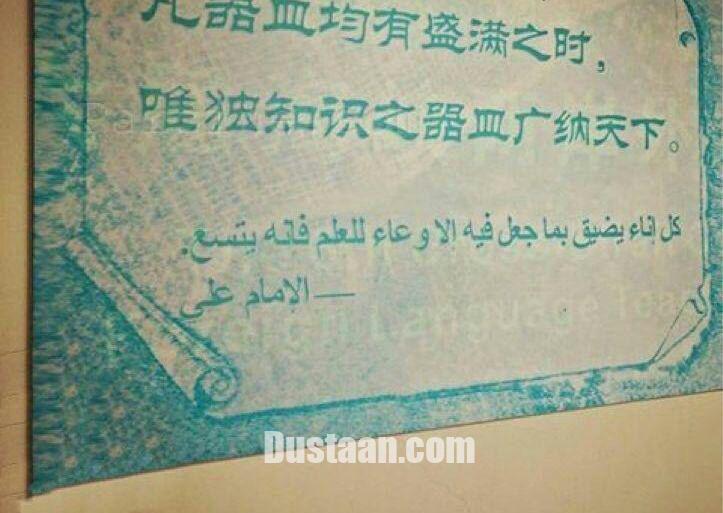 凡器皿均有盛满之时，
唯独知识之器皿广纳天下。
كل إناء يضيق بما جعل فيه الا وعاء للعلم فانه يتسع.
— الامام على
Foreign Language
Dustaan.com